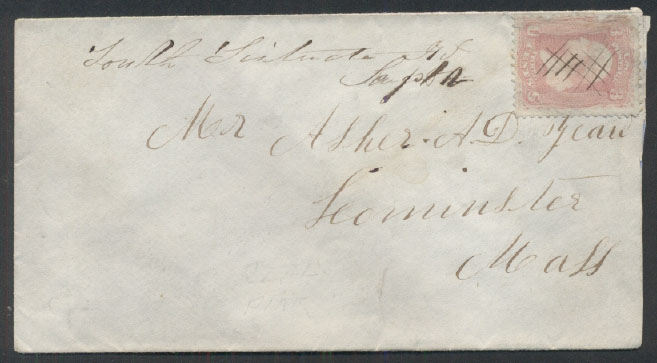 South Scituate
Sept 12
Mr Asher. A. D.
Leominster
Mass